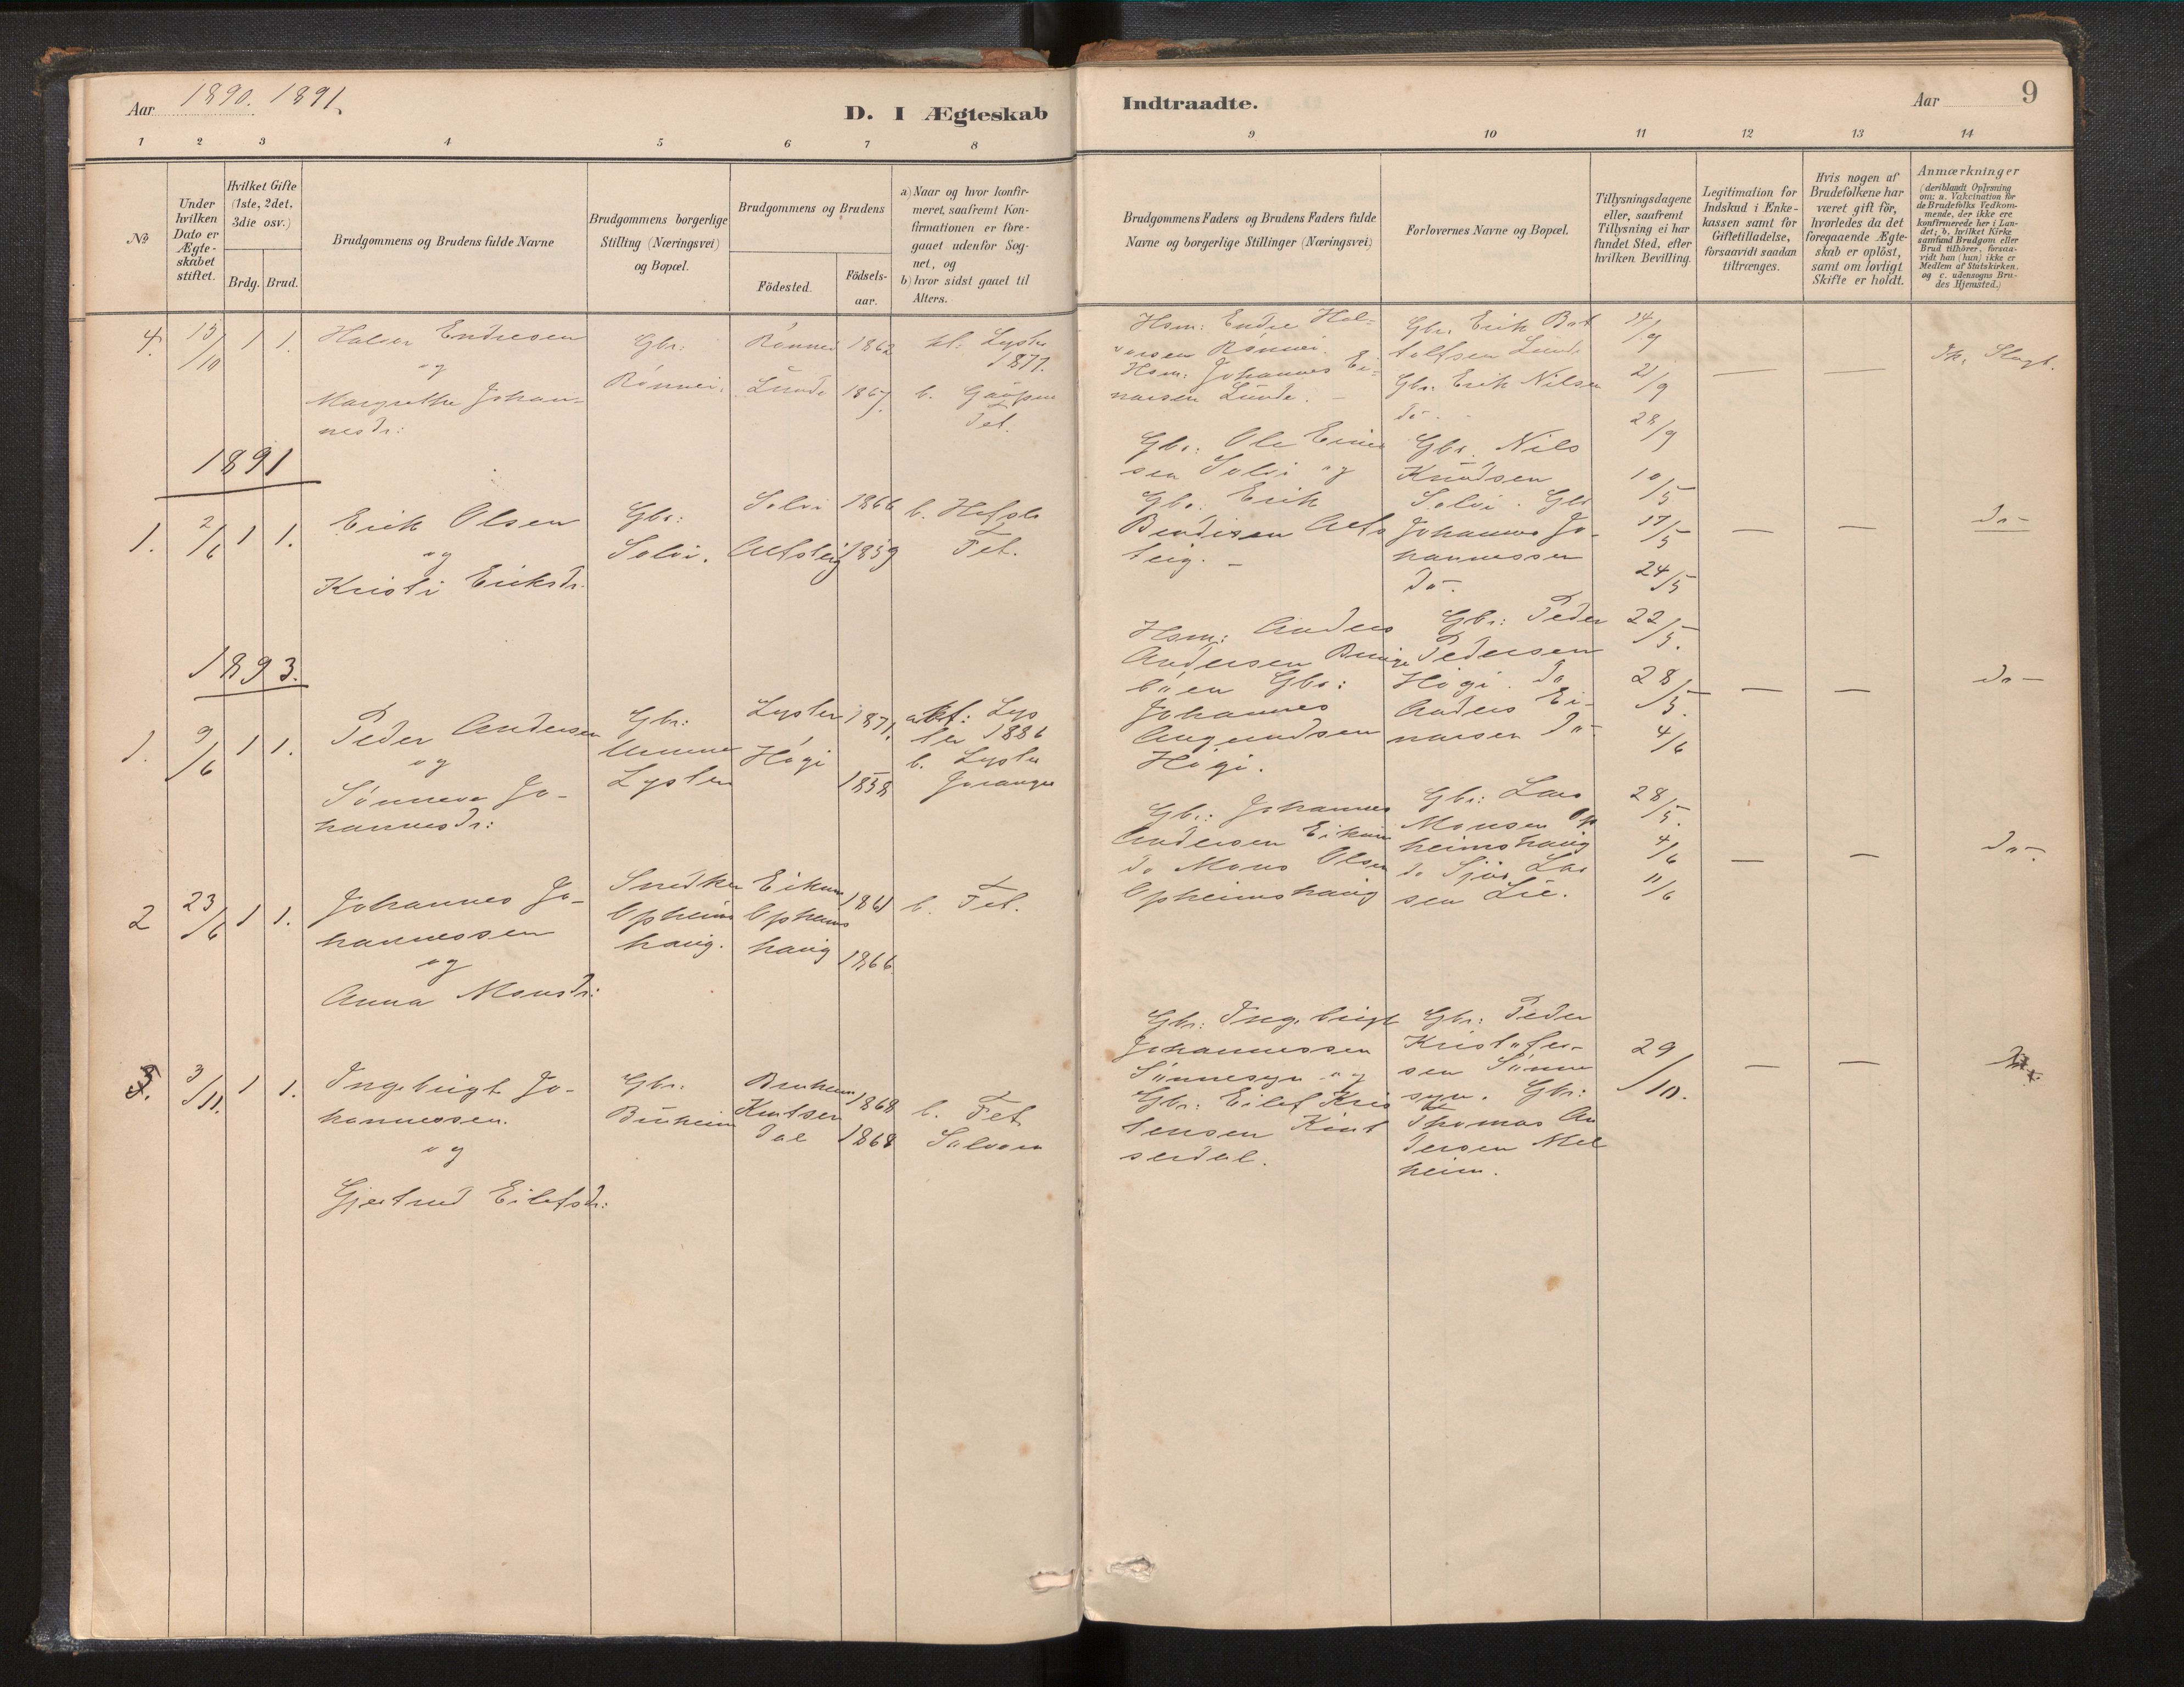 Aar 1890. 1891.
D. I Ægteskab
Indtraadte.
Aar
9
1 2 3 4 5 6 7 8
9 10 11 12 13 14
No
Under hvilken Dato er Ægteskabet stiftet.
Hvilket Gifte (1ste, 2det, 3die osv.)
Brdg. Brud.
Brudgommens og Brudens fulde Navne
Brudgommens borgerlige Stilling (Næringsvei) og Bopæl.
Brudgommens og Brudens
Födested.
Födsels-aar.
a) Naar og hvor konfir-
meret, saafremt Kon-
firmationen er fore-
gaaet udenfor Sog-
net, og
b) hvor sidst gaaet til
Alters.
Brudgommens Faders og Brudens Faders fulde
Navne og borgerlige Stillinger (Næringsvei)
Forlovernes Navne og Bopæl.
Tillysningsdagene
eller, saafremt
Tillysning ei har
fundet Sted, efter
hvilken Bevilling.
Legitimation for
Indskud i Enke-
kassen samt for
Giftetilladelse,
forsaavidt saadan
tiltrænges.
Hvis nogen af
Brudefolkene har
været gift för,
hvorledes da det
foregaaende Ægte-
skab er oplöst,
samt om lovligt
Skifte er holdt.
Anmærkninger
(deriblandt Oplysning
om: a. Vakcination for
de Brudefolks Vedkom-
mende, der ikke ere
konfirmerede her i Lan-
det; b. hvilket Kirke
samfund Brudgom eller
Brud tilhörer, forsaa-
vidt han (hun) ikke er
Medlem af Statskirken.
og c. udensogns Bru-
des Hjemsted.)
4. 15/10 1 1.
Halvor Endresen
og
Margrethe Johan-
nesdr:
Gbr:
Rønnei.
Rønnei 1862
Lunde 1867.
Lyster
1877.
b. Gaupne
Fet.
Hsm: Endre Hal-
vorsen Rønnei.
Hsm: Johannes Ei-
narsen Lunde. -
Gbr. Erik Bot
tolfsen Lunde
Gbr. Erik Nilsen
do -
14/9
21/9
28/9
— —
1891
1. 2/6 1 1.
Erik Olsen
og
Kristi Eriksdr.
Gbr:
Solvi.
Solvi 1866
Alfsteig 1859
b. Hafslo
Fet.
Gbr: Ole Einar
sen Solvi og
Gbr. Erik
Bendixen Alfs
teig. -
Gbr. Nils
Knudsen
Solvi. Gbr
Johannes Jo-
hannessen
do -.
10/5
17/5
24/5
— — do -
1893.
1. 9/6 1 1.
Peder Andersen
og
Sønneva Jo-
hannesdr:
Gbr:
Lyster
Lyster 1871.
Høgi
1858
a kf: Lys
ter 1886
b. Lyster
Joranger
Hsm: Anders
Andersen
bøen Gbr:
Johannes
Augundsen
Høgi.
Gbr: Peder
Pedersen
Høgi. do
Anders Ei-
narsen do -.
22/5.
28/5.
4/6
— — do -
2 23/6 1 1.
Johannes Jo-
hannessen
og
Anna Monsdr:
Snedker
Opheims
haug.
Eikum 1861
Opheims
haug 1866.
b. Fet.
Gbr: Johannes
Andersen Eikum
do Mons Olsen
Opheimshaug
Gbr: Lars
Monsen Op
heimshaug
do Sjur Lar
sen Lie.
28/5.
4/6
11/6
— — do -.
3. 3/11. 1 1.
Ingebrigt Jo-
hannessen.
og
Gjertrud Eilefsdr:
Gbr.
Buheim
Buheim 1868
Kintser
dal 1868
b. Fet
Solvorn
Gbr: Ingebrigt
Johannessen
Sønnesyn og
Gbr: Eilef Kris
tensen Kint
serdal.
Gbr: Peder
Kristofer-
sen Sønne
syn. Gbr:
Thomas An
dersen Mel
heim.
29/10.
— —